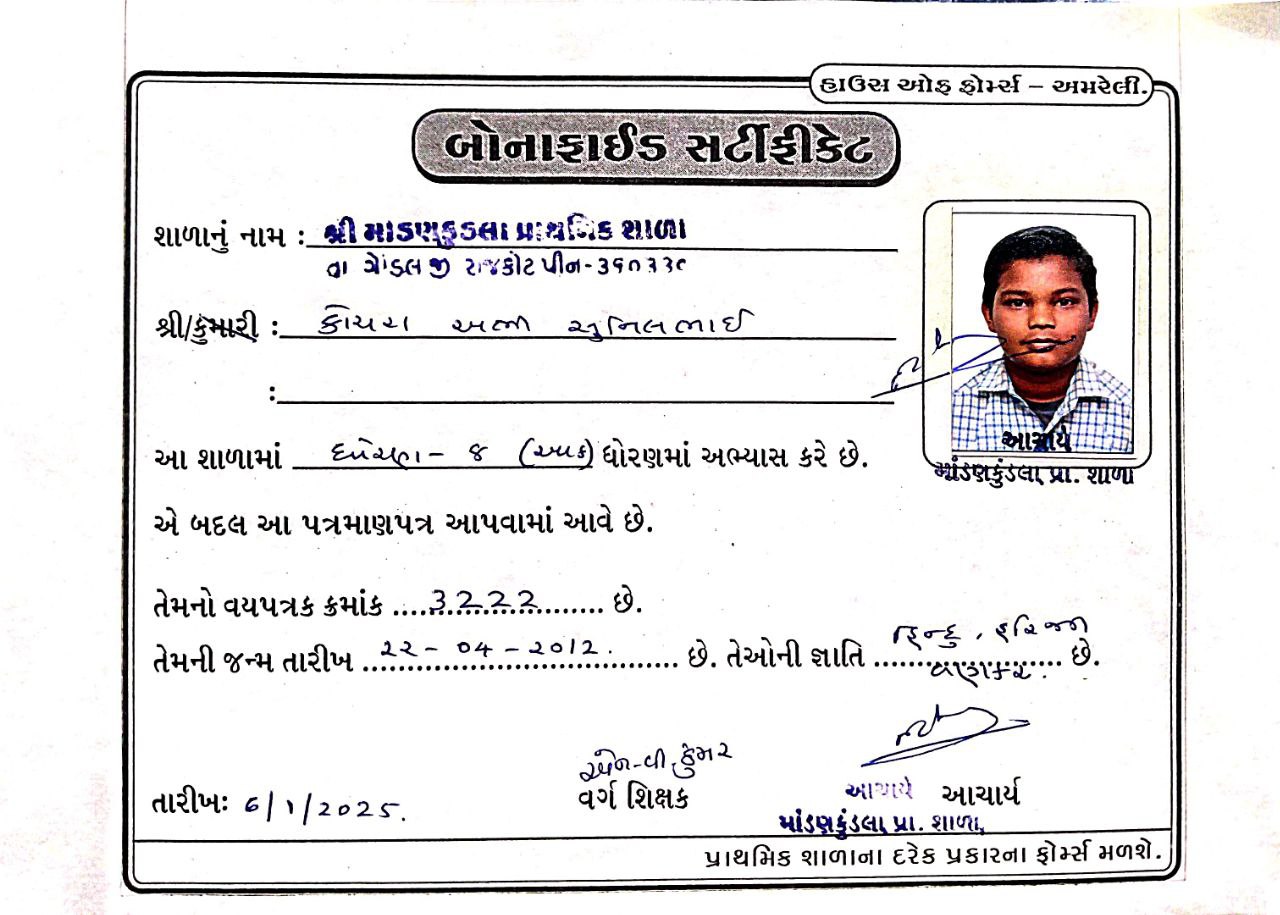 હાઉસ ઓફ ફોર્મ્સ – અમરેલી.
બોનાફાઈડ સર્ટીફીકેટ
શાળાનું નામ : શ્રી માંડણકુંડલા પ્રાથમિક શાળા
તા ગોંડલ જી રાજકોટ પીન-૩૬૦૩૩૦
શ્રી/કુમારી : સુનિલભાઈ
:
આ શાળામાં ધોરણ - ૮ (આઠ) ધોરણમાં અભ્યાસ કરે છે.
આચાર્ય
માંડણકુંડલા પ્રા. શાળા
એ બદલ આ પત્રમાણપત્ર આપવામાં આવે છે.
તેમનો વયપત્રક ક્રમાંક ....3222........ છે.
તેમની જન્મ તારીખ ૨૨ - ૦૪ - ૨૦૧૨. છે. તેઓની જ્ઞાતિ હિન્દુ, હરિજન છે.
વણકર.
એન-વી. કુમર
તારીખઃ 6/1/2025. વર્ગ શિક્ષક આચાર્ય આચાર્ય
માંડણકુંડલા પ્રા. શાળા
પ્રાથમિક શાળાના દરેક પ્રકારના ફોર્મ્સ મળશે.